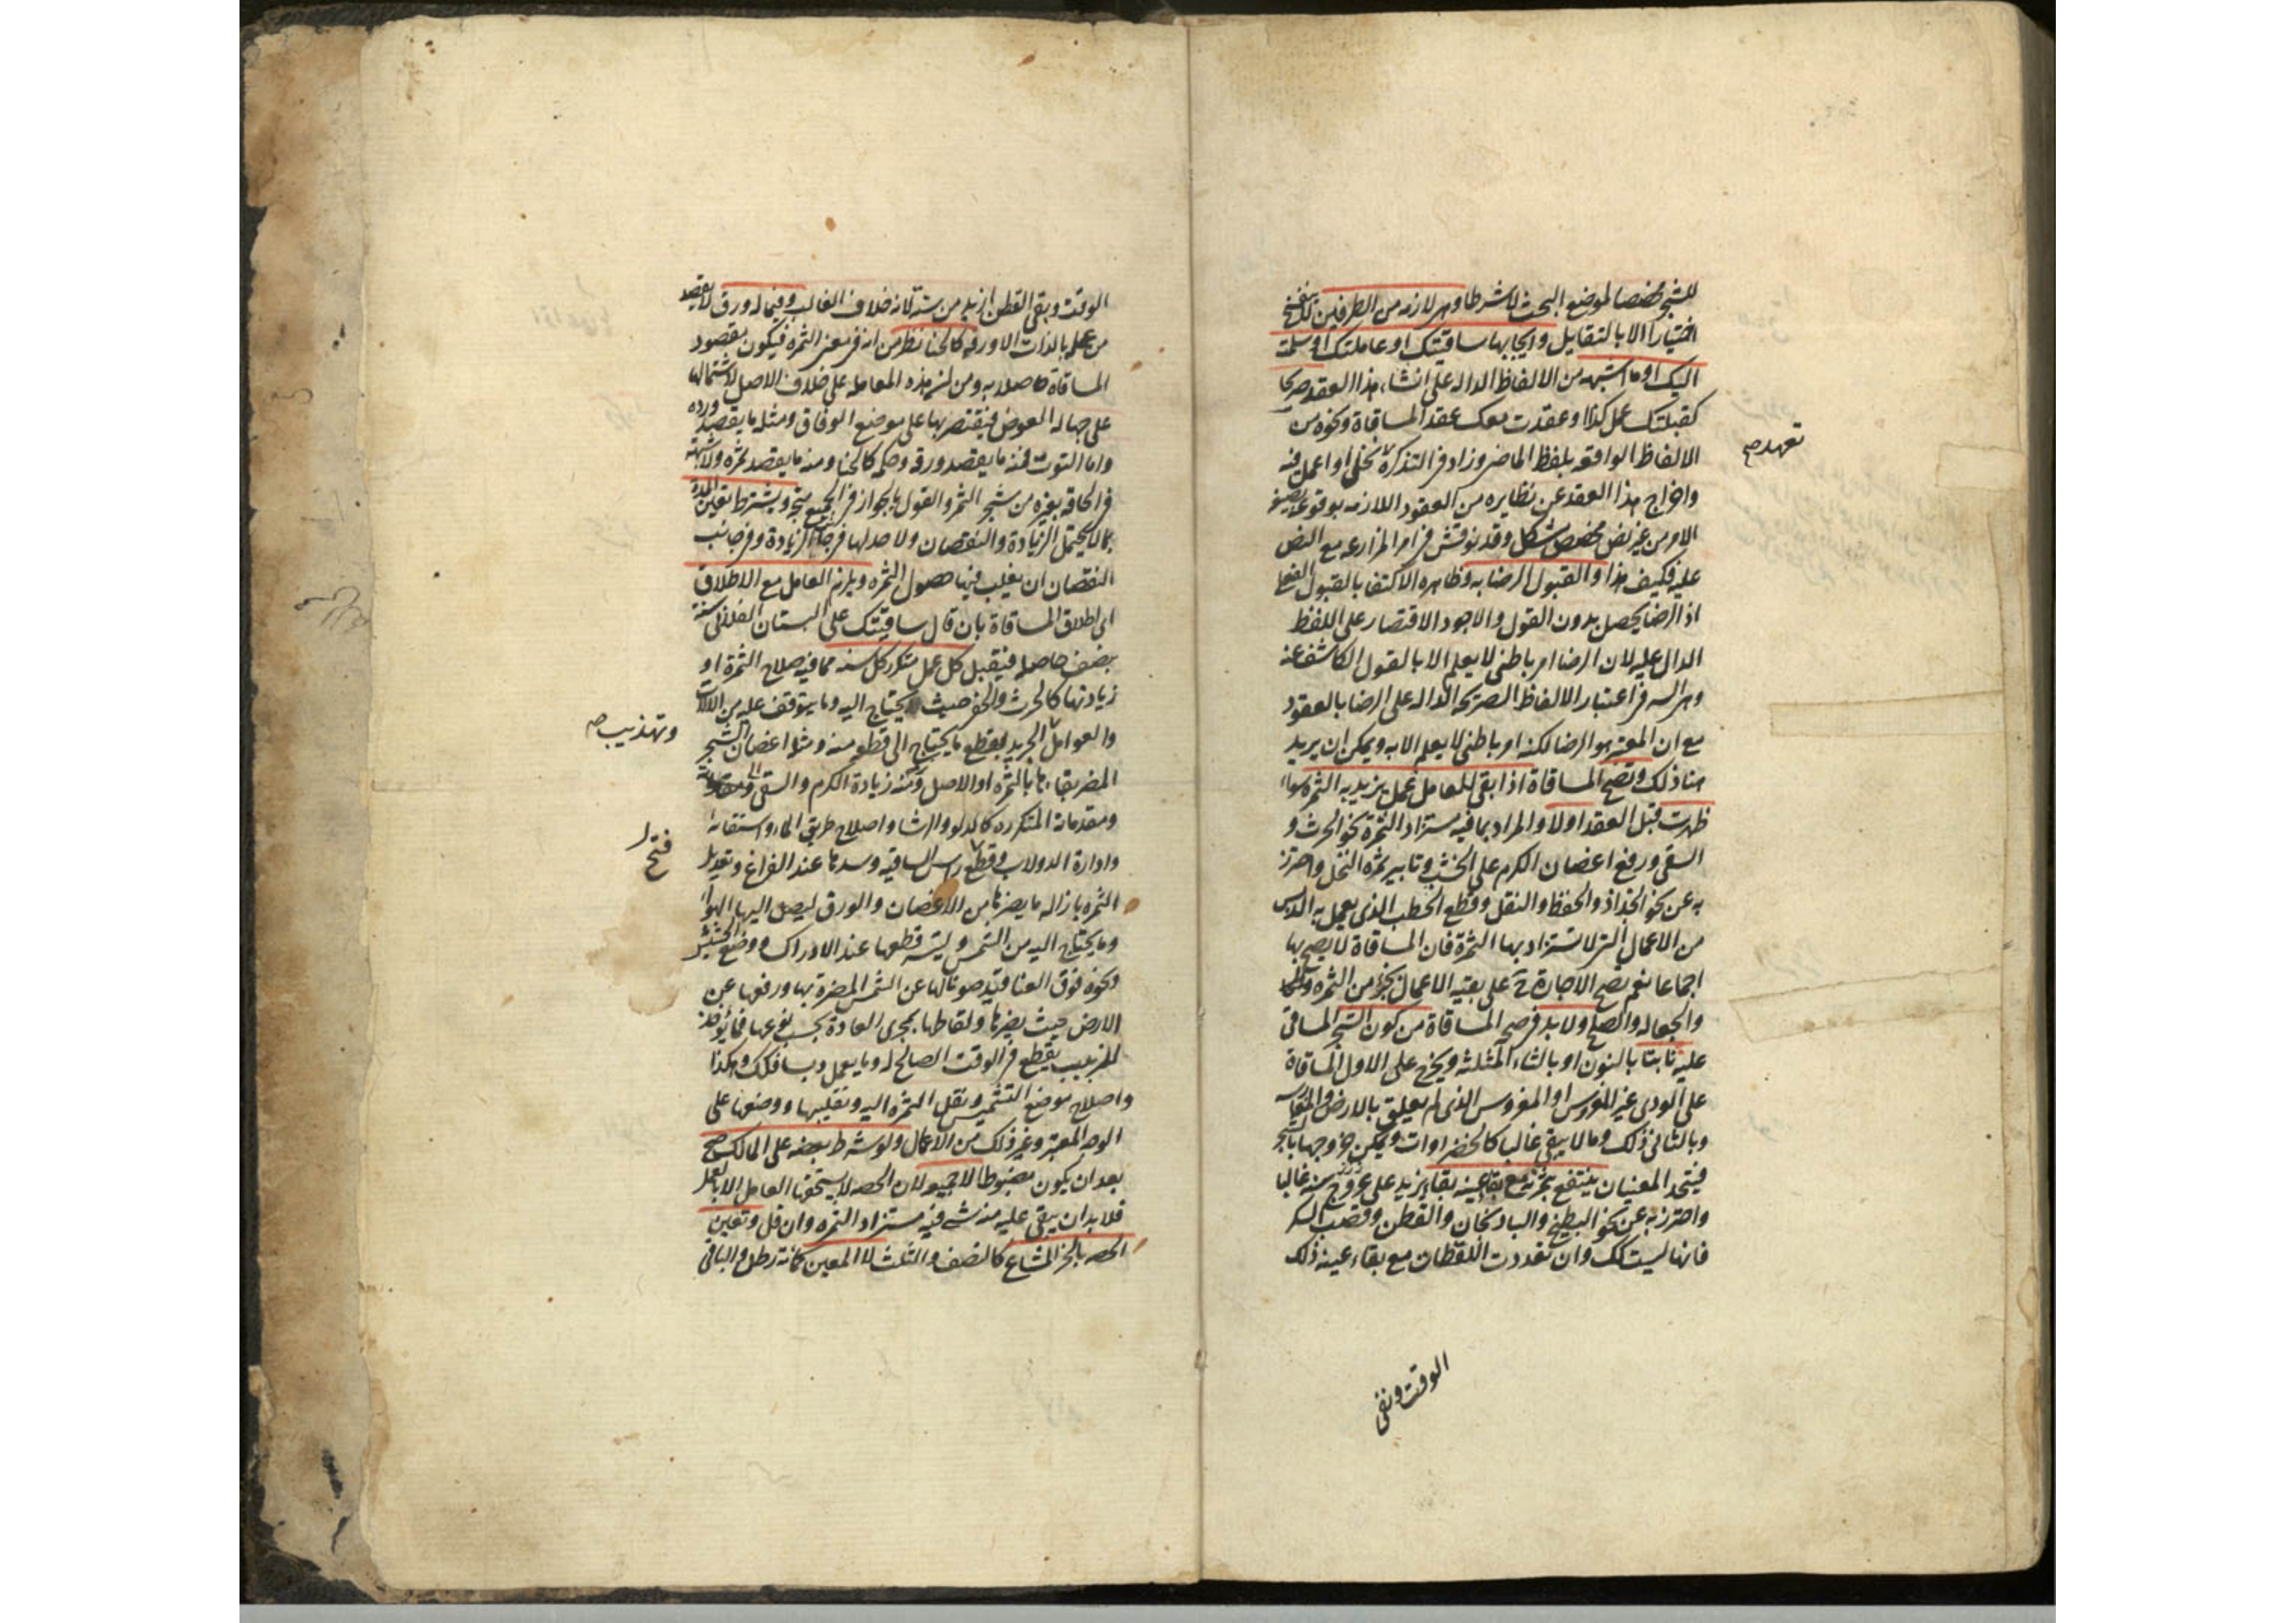 للشجر مخصصا لموضع البحث لا شرطا وهي لازمة من الطرفين لا تنفسخ
اختيارا الا بالتقايل وايجابها ساقيتك او عاملتك او سلمت
اليك او ما اشبهه من الالفاظ الداله على انشاء هذا العقد صريحا
كقبلتك عمل كذا او عقدت معك عقد المساقاة ونحوه من
الالفاظ الواقعه بلفظ الماضي وزاد في التذكرة تعهد نخلي او اعمل فيه
واخراج هذا العقد عن نظايره من العقود اللازمه بوقوعه بصيغة
الامر من غير نص مخصص مشكل وقد نوقش في امر المزارعه مع النص
عليه فكيف هذا والقبول الرضا به وظاهره الاكتفا بالقبول الفعلي
اذ الرضا يحصل بدون القول والاجود الاقتصار على اللفظ
الدال عليه لان الرضا امر باطني لا يعلم الا بالقول الكاشف عنه
وهو السر في اعتبار الالفاظ الصريحه الداله على الرضا بالعقود
مع ان المعتبر هو الرضا لكنه امر باطني لا يعلم الا به ويمكن ان يريد
هنا ذلك وتصح المساقاة اذا بقي للعامل عمل يزيد به الثمرة سواء
ظهرت قبل العقد اولا والمراد بما فيه مستزاد الثمرة نحو الحرث و
السقي ورفع اغصان الكرم على الخشب وتابير ثمرة النخل واحترز
به عن نحو الجذاذ والحفظ والنقل وقطع الحطب الذي يعمل به الدبس
من الاعمال التي لا تستزاد بها الثمرة فان المساقاة لا يصح بها
اجماعا نعم يصح الاجارة ح على بقية الاعمال بجزء من الثمرة
والجعاله والصلح ولا بد في صحة المساقاة من كون الشجر المساقى
عليه نابتا بالنون او بالثاء المثلثه ويخرج على الاول المساقاة
على الودي غير المغروس او المغروس الذي لم يعلق بالارض
وبالثاني ذلك وما لا يبقى غالبا كالخضراوات ويمكن خروجها بالشجر
فيتحد المعنيان ينتفع بثمرته مع بقاء عينه بقاء يزيد على سنة غالبا
واحترز به عن نحو البطيخ والباذنجان والقطن وقصب السكر
فانها ليست كك وان تعددت اللقطات مع بقاء عينه ذلك
تعهد صح
الوقت وبقي
الوقت وبقى القطن ازيد من سنة لانه خلاف الغالب وفيما له ورق لا يقصد
من عمله بالذات الا ورقه كالحنا نظر من انه في معنى الثمره فيكون مقصود
المساقاة حاصلا به ومن ان هذه المعاملة على خلاف الاصل لاشتمالها
على جهالة العوض فيقتصر بها على موضع الوفاق ومثله ما يقصد ورده
واما التوت فمنه ما يقصد ورقه وحكمه كالحنا ومنه ما يقصد ثمره ولا شبهة
في الحاقه بغيره من شجر الثمر والقول بالجواز في الجميع متجه ويشترط تعيين المدة
بما لا يحتمل الزيادة والنقصان ولا حد لها في جانب الزيادة وفي جانب
النقصان ان يغلب فيها حصول الثمره ويلزم العامل مع الاطلاق
اي اطلاق المساقاة بان قال ساقيتك على البستان الفلاني سنة
بنصف حاصله فيقبل كل عمل متكرر كل سنه مما فيه صلاح الثمرة او
زيادتها كالحرث والحفر حيث يحتاج اليه وما يتوقف عليه من الالات
والعوامل وتهذيب الجريد بقطع ما يحتاج الى قطعه منه ومثله اغصان الشجر
المضر بقاءها بالثمره او الاصل ومنه زيادة الكرم والسقي
ومقدماته المتكرره كالدلو والرشا واصلاح طريق الماء واستقائه
وادارة الدولاب وفتح راس الساقيه وسدها عند الفراغ وتعديل
الثمره بازالة ما يضرها من الاغصان والورق ليصل اليها الهواء
وما يحتاج اليه من الشمس وليتيسر قطعها عند الادراك ووضع الحشيش
ونحوه فوق العناقيد صونا لها عن الشمس المضرة بها ورفعها عن
الارض حيث يضرها ولقاطها بمجرى العادة بحسب نوعها فما يؤخذ
للزبيب يقطع في الوقت الصالح له وما يعمل دبسا فكذلك وهكذا
واصلاح موضع التشميس ونقل الثمرة اليه وتقليبها ووضعها على
الوجه المعتبر وغير ذلك من الاعمال ولو شرط بعضه على المالك صح
بعد ان يكون مضبوطا لا جميعه لان الحصه لا يستحقها العامل الا بالعمل
فلا بد ان يبقى عليه منه شيء فيه مستزاد الثمره وان قل وتعيين
الحصه بالجزء المشاع كالنصف والثلث لا المعين كمائة رطل والباقي
وتهذيب صح
فتح